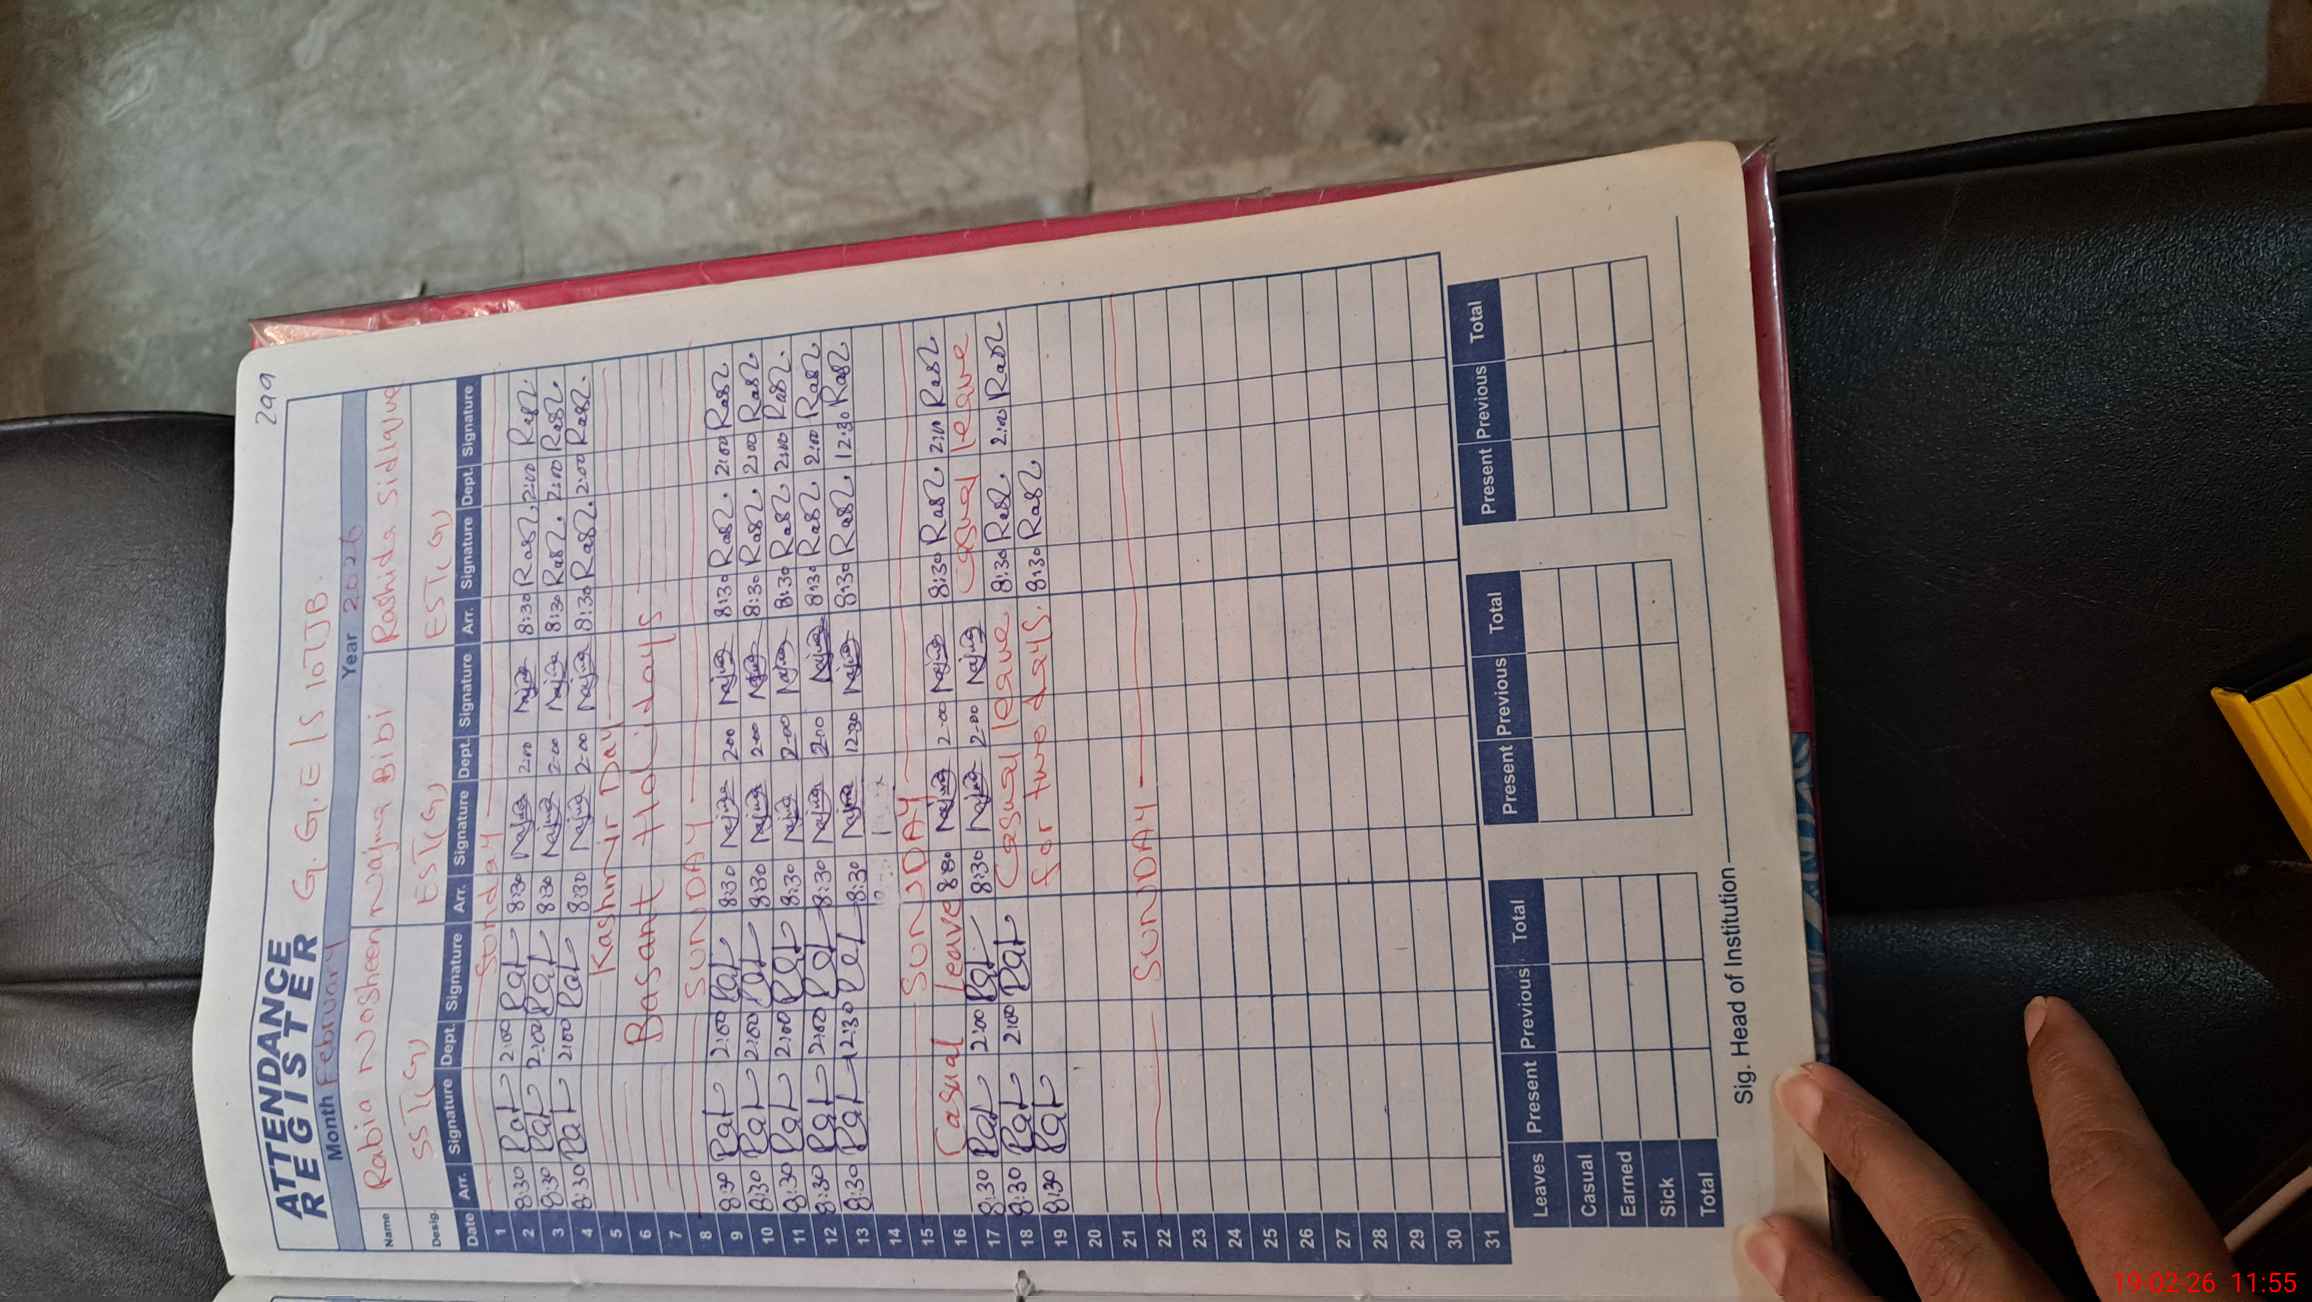 299
ATTENDANCE REGISTER G.G.E/S 107JB.
Month February Year 2026
Name Rabia Nosheen Najma Bibi Rashida Sidique
Desig. SST(G) EST(G) EST(G)
Date Arr. Signature Dept. Signature Arr. Signature Dept. Signature Arr. Signature Dept. Signature
1 Sunday
2 8:30 2:00 8:30 Najma 2:00 Najma 8:30 2:00
3 8:30 2:00 8:30 Najma 2:00 Najma 8:30 2:00
4 8:30 2:00 8:30 Najma 2:00 Najma 8:30 2:00
5 Kashmir Day
6 Basant Holidays
7
8 SUNDAY
9 8:30 2:00 8:30 Najma 2:00 Najma 8:30 2:00
10 8:30 2:00 8:30 Najma 2:00 Najma 8:30 2:00
11 8:30 2:00 8:30 Najma 2:00 Najma 8:30 2:00
12 8:30 2:00 8:30 Najma 2:00 Najma 8:30 2:00
13 8:30 12:30 8:30 Najma 12:30 Najma 8:30 12:30
14
15 SUNDAY
16 Casual leave 8:30 Najma 2:00 Najma 8:30 2:00
17 8:30 2:00 8:30 Najma 2:00 Najma Casual leave
18 8:30 2:00 Casual leave 8:30 2:00
19 8:30 for two days. 8:30
20
21
22 SUNDAY
23
24
25
26
27
28
29
30
31
Leaves Present Previous Total Present Previous Total Present Previous Total
Casual
Earned
Sick
Total
Sig. Head of Institution
19-02-26 11:55